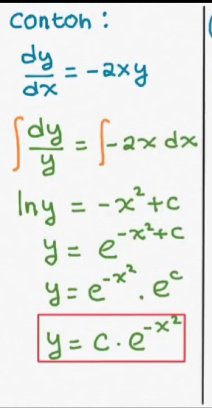 Contoh :
dy/dx = -2xy
∫ dy/y = ∫ -2x dx
ln y = -x² + c
y = e^(-x²+c)
y = e^(-x²) . e^c
y = c . e^(-x²)